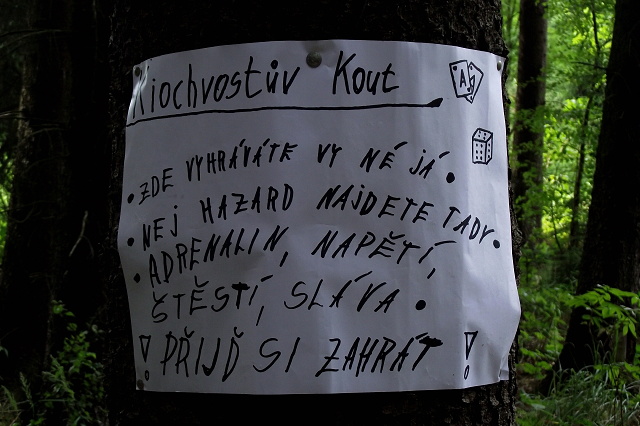 Kiochvostův Kout
A
• ZDE VYHRÁVÁTE VY NÉ JÁ.
• NEJ HAZARD NAJDETE TADY.
• ADRENALIN, NAPĚTÍ,
ŠTĚSTÍ, SLÁVA.
! PŘIJĎ SI ZAHRÁT !